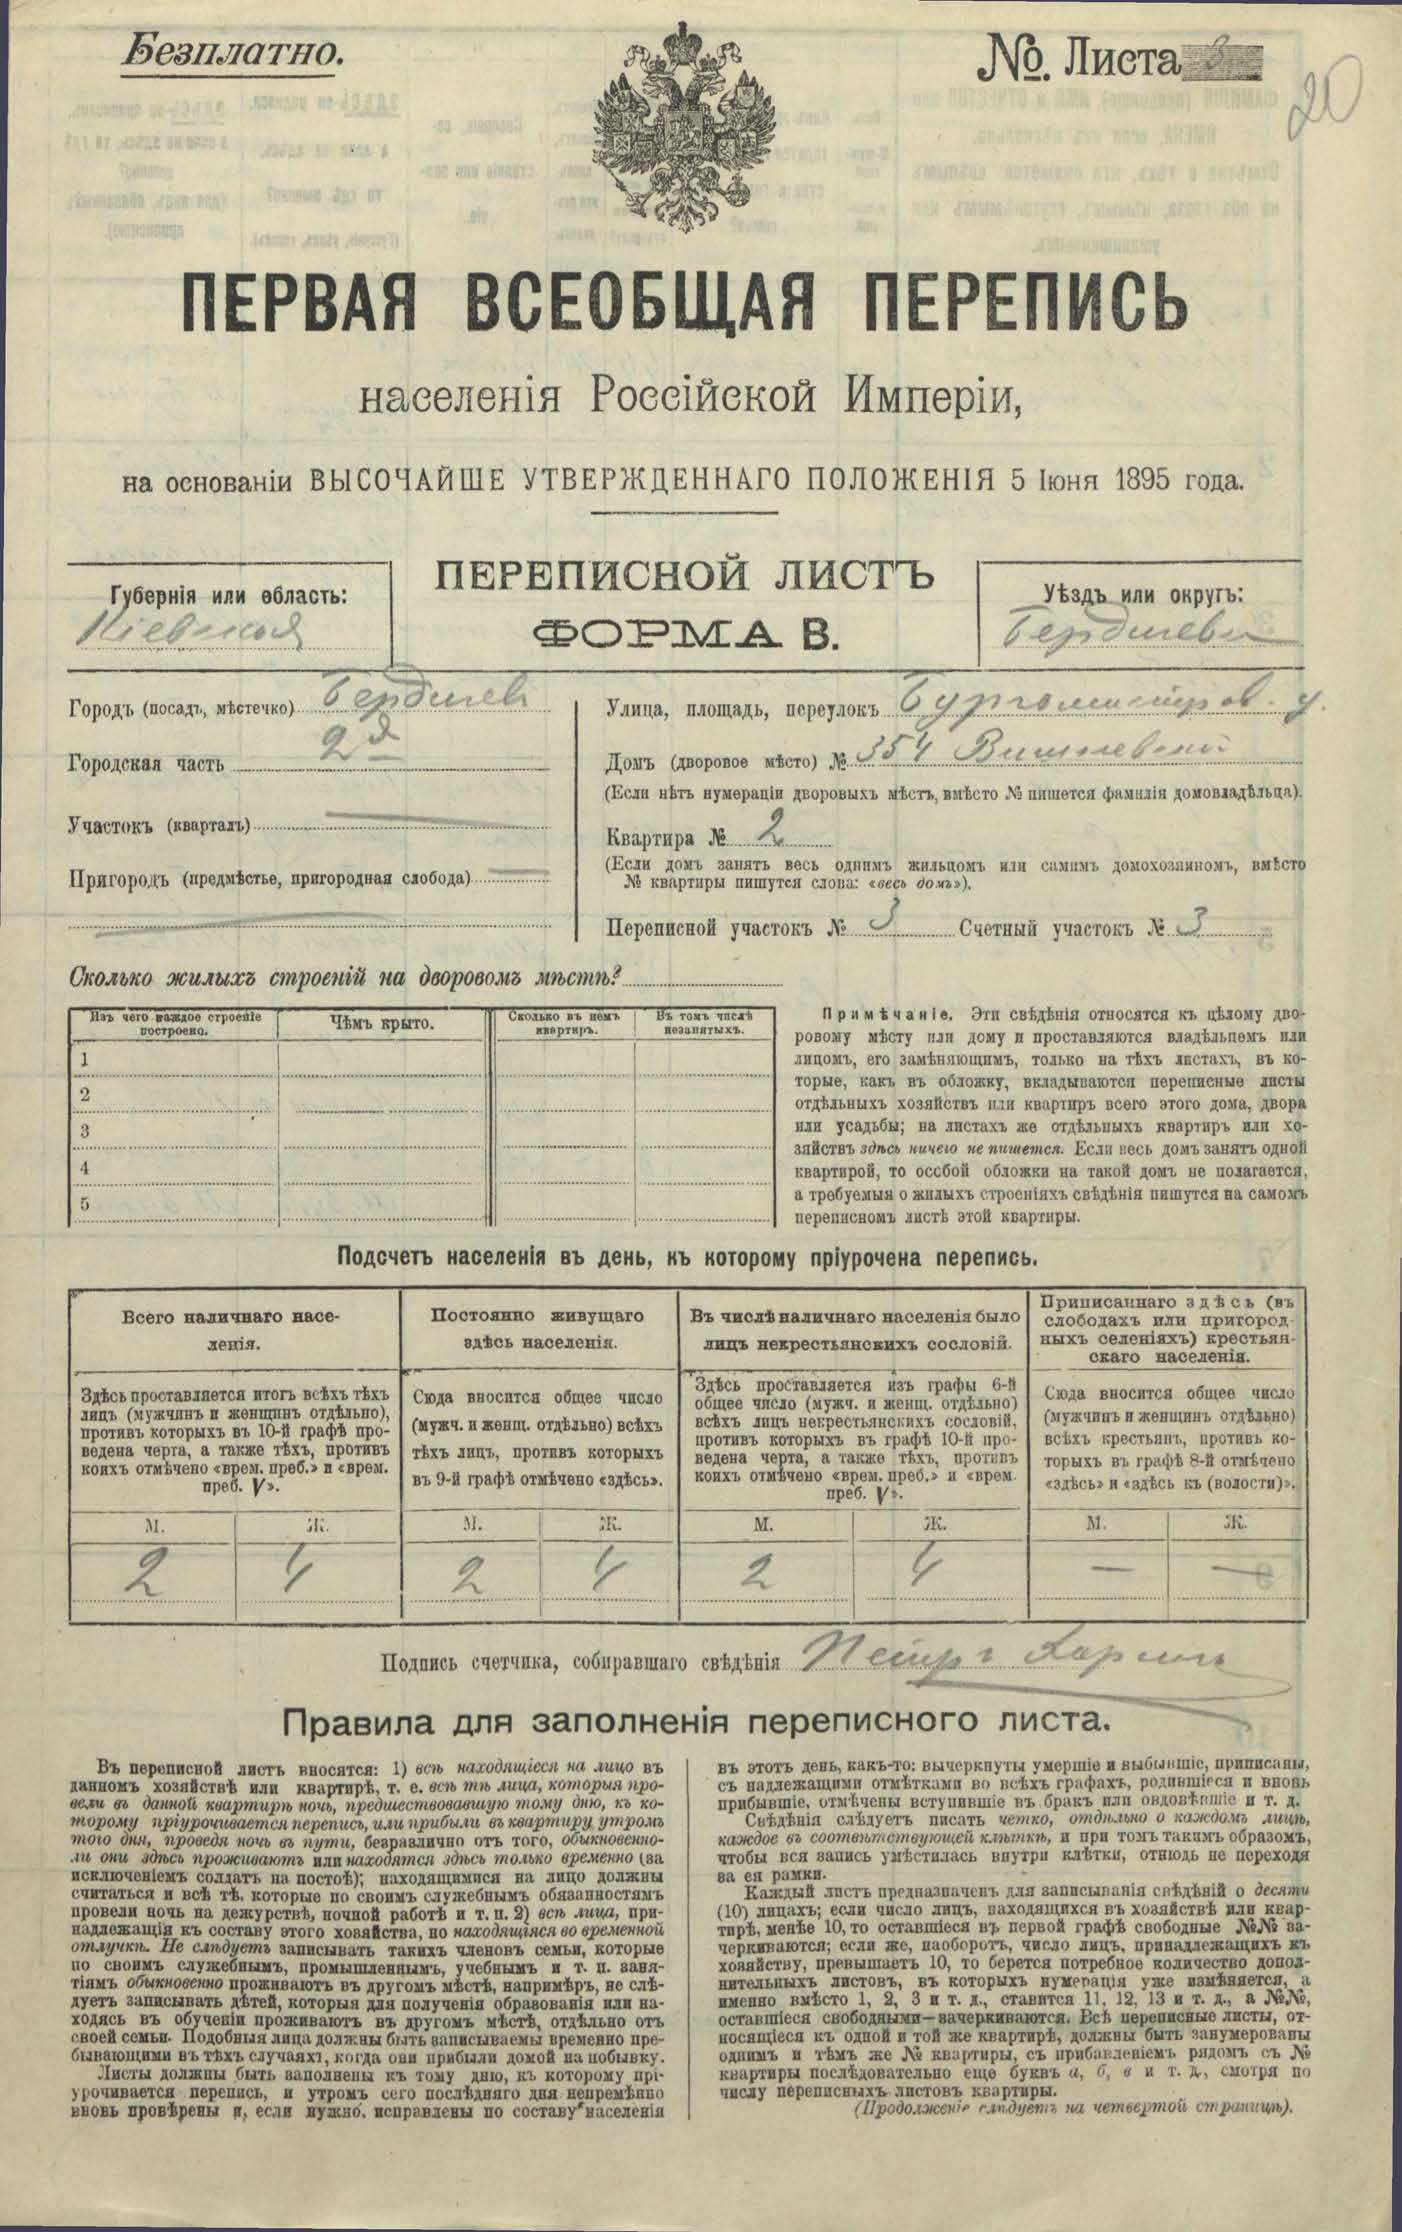 Безплатно.
№. Листа 3
20
ПЕРВАЯ ВСЕОБЩАЯ ПЕРЕПИСЬ
населенія Россійской Имперіи,
на основаніи ВЫСОЧАЙШЕ УТВЕРЖДЕННАГО ПОЛОЖЕНІЯ 5 Іюня 1895 года.
Губернія или область:
Кіевская
ПЕРЕПИСНОЙ ЛИСТЪ
ФОРМА В.
Уѣздъ или округъ:
Бердичевъ
Городъ (посадъ, мѣстечко) Бердичевъ
Городская часть 2я
Участокъ (кварталъ)
Пригородъ (предмѣстье, пригородная слобода)
Улица, площадь, переулокъ Бургомистров. у.
Домъ (дворовое мѣсто) № 354 Вишневской
(Если нѣтъ нумераціи дворовыхъ мѣстъ, вмѣсто № пишется фамилія домовладѣльца).
Квартира № 2
(Если домъ занятъ весь однимъ жильцомъ или самимъ домохозяиномъ, вмѣсто
№ квартиры пишутся слова: «весь домъ»).
Переписной участокъ № 3 Счетный участокъ № 3
Сколько жилыхъ строеній на дворовомъ мѣстѣ?
Изъ чего каждое строеніе
построено.
Чѣмъ крыто.
Сколько въ немъ
квартиръ.
Въ томъ числѣ
незанятыхъ.
1
2
3
4
5
Примѣчаніе. Эти свѣдѣнія относятся къ цѣлому дво-
ровому мѣсту или дому и проставляются владѣльцемъ или
лицомъ, его замѣняющимъ, только на тѣхъ листахъ, въ ко-
торые, какъ въ обложку, вкладываются переписные листы
отдѣльныхъ хозяйствъ или квартиръ всего этого дома, двора
или усадьбы; на листахъ же отдѣльныхъ квартиръ или хо-
зяйствъ здѣсь ничего не пишется. Если весь домъ занятъ одной
квартирой, то особой обложки на такой домъ не полагается,
а требуемыя о жилыхъ строеніяхъ свѣдѣнія пишутся на самомъ
переписномъ листѣ этой квартиры.
Подсчетъ населенія въ день, къ которому пріурочена перепись.
Всего наличнаго насе-
ленія.
Постоянно живущаго
здѣсь населенія.
Въ числѣ наличнаго населенія было
лицъ некрестьянскихъ сословій.
Приписаннаго здѣсь (въ
слободахъ или пригород-
ныхъ селеніяхъ) крестьян-
скаго населенія.
Здѣсь проставляется итогъ всѣхъ тѣхъ
лицъ (мужчинъ и женщинъ отдѣльно),
противъ которыхъ въ 10-й графѣ про-
ведена черта, а также тѣхъ, противъ
коихъ отмѣчено «врем. преб.» и «врем.
преб. V».
Сюда вносится общее число
(мужч. и женщ. отдѣльно) всѣхъ
тѣхъ лицъ, противъ которыхъ
въ 9-й графѣ отмѣчено «здѣсь».
Здѣсь проставляется изъ графы 6-й
общее число (мужч. и женщ. отдѣльно)
всѣхъ лицъ некрестьянскихъ сословій,
противъ которыхъ въ графѣ 10-й про-
ведена черта, а также тѣхъ, противъ
коихъ отмѣчено «врем. преб.» и «врем.
преб. V».
Сюда вносится общее число
(мужчинъ и женщинъ отдѣльно)
всѣхъ крестьянъ, противъ ко-
торыхъ въ графѣ 8-й отмѣчено
«здѣсь» и «здѣсь къ (волости)».
М. Ж. М. Ж. М. Ж. М. Ж.
2 4 2 4 2 4 — —
Подпись счетчика, собиравшаго свѣдѣнія Петръ
Правила для заполненія переписного листа.
Въ переписной листъ вносятся: 1) всѣ находящіеся на лицо въ
данномъ хозяйствѣ или квартирѣ, т. е. всѣ тѣ лица, которыя про-
вели въ данной квартирѣ ночь, предшествовавшую тому дню, къ ко-
торому пріурочивается перепись, или прибыли въ квартиру утромъ
того дня, проведя ночь въ пути, безразлично отъ того, обыкновенно-
ли они здѣсь проживаютъ или находятся здѣсь только временно (за
исключеніемъ солдатъ на постоѣ); находящимися на лицо должны
считаться и всѣ тѣ, которые по своимъ служебнымъ обязанностямъ
провели ночь на дежурствѣ, ночной работѣ и т. п. 2) всѣ лица, при-
надлежащія къ составу этого хозяйства, но находящіяся во временной
отлучкѣ. Не слѣдуетъ записывать такихъ членовъ семьи, которые
по своимъ служебнымъ, промышленнымъ, учебнымъ и т. п. заня-
тіямъ обыкновенно проживаютъ въ другомъ мѣстѣ, напримѣръ, не слѣ-
дуетъ записывать дѣтей, которыя для полученія образованія или на-
ходясь въ обученіи проживаютъ въ другомъ мѣстѣ, отдѣльно отъ
своей семьи. Подобныя лица должны быть записываемы временно пре-
бывающими въ тѣхъ случаяхъ, когда они прибыли домой на побывку.
Листы должны быть заполнены къ тому дню, къ которому прі-
урочивается перепись, и утромъ сего послѣдняго дня непремѣнно
вновь провѣрены и, если нужно, исправлены по составу населенія
въ этотъ день, какъ-то: вычеркнуты умершіе и выбывшіе, приписаны,
съ надлежащими отмѣтками во всѣхъ графахъ, родившіеся и вновь
прибывшіе, отмѣчены вступившіе въ бракъ или овдовѣвшіе и т. д.
Свѣдѣнія слѣдуетъ писать четко, отдѣльно о каждомъ лицѣ,
каждое въ соотвѣтствующей клѣткѣ, и при томъ такимъ образомъ,
чтобы вся запись умѣстилась внутри клѣтки, отнюдь не переходя
за ея рамки.
Каждый листъ предназначенъ для записыванія свѣдѣній о десяти
(10) лицахъ; если число лицъ, находящихся въ хозяйствѣ или квар-
тирѣ, менѣе 10, то оставшіеся въ первой графѣ свободные №№ за-
черкиваются; если же, наоборотъ, число лицъ, принадлежащихъ къ
хозяйству, превышаетъ 10, то берется потребное количество допол-
нительныхъ листовъ, въ которыхъ нумерація уже измѣняется, а
именно вмѣсто 1, 2, 3 и т. д., ставится 11, 12, 13 и т. д., а №№,
оставшіеся свободными—зачеркиваются. Всѣ переписные листы, от-
носящіеся къ одной и той же квартирѣ, должны быть занумерованы
однимъ и тѣмъ же № квартиры, съ прибавленіемъ рядомъ съ №
квартиры послѣдовательно еще буквъ а, б, в и т. д., смотря по
числу переписныхъ листовъ квартиры.
(Продолженіе слѣдуетъ на четвертой страницѣ).